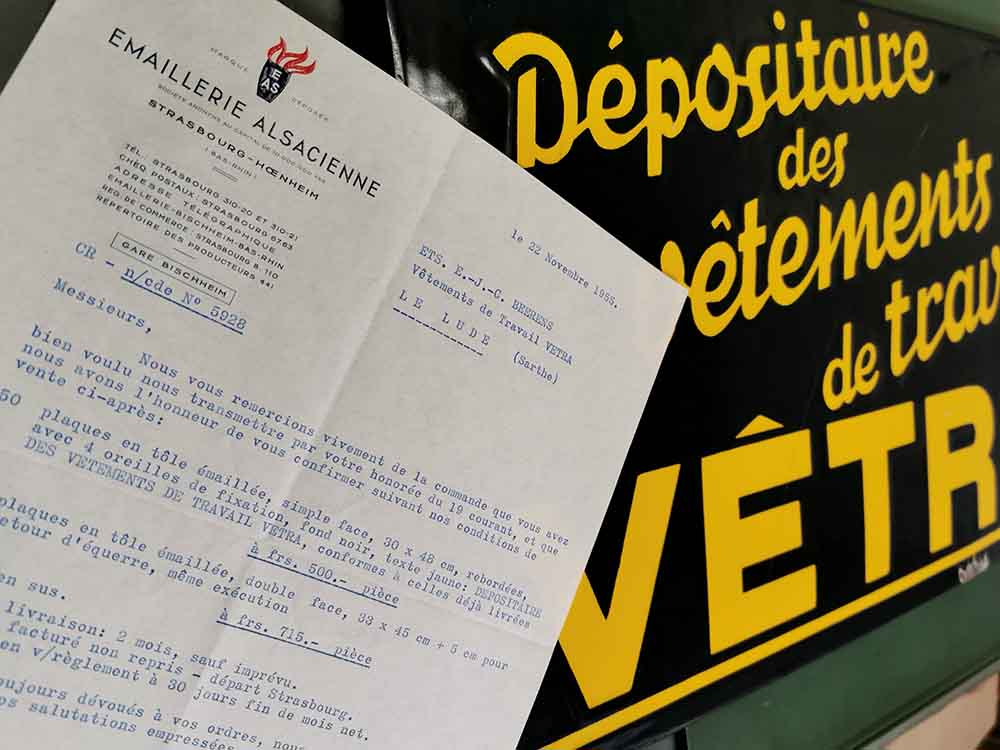 MARQUE DÉPOSÉE
EAS
EMAILLERIE ALSACIENNE
STRASBOURG-HŒNHEIM
(BAS-RHIN)
TÉL.: STRASBOURG 310-20 ET 310-21
CHÈQ. POSTAUX: STRASBOURG 6763
ADRESSE TÉLÉGRAPHIQUE
EMAILLERIE-BISCHHEIM-BAS-RHIN
REG. DE COMMERCE: STRASBOURG B. 110
RÉPERTOIRE DES PRODUCTEURS 441
GARE BISCHHEIM
le 22 Novembre 1955.
ETS. E.-J.-C. BRERENS
Vêtements de Travail VETRA
LE LUDE
(Sarthe)
CR - n/cde N° 5928
Messieurs,
Nous vous remercions vivement de la commande que vous avez
bien voulu nous transmettre par votre honorée du 19 courant, et que
nous avons l'honneur de vous confirmer suivant nos conditions de
vente ci-après:
50 plaques en tôle émaillée, simple face, 30 x 48 cm, rebordées,
avec 4 oreilles de fixation, fond noir, texte jaune: DEPOSITAIRE
DES VETEMENTS DE TRAVAIL VETRA, conformes à celles déjà livrées
à frs. 500.- pièce
plaques en tôle émaillée, double face, 33 x 45 cm + 5 cm pour
retour d'équerre, même exécution
à frs. 715.- pièce
en sus.
livraison: 2 mois, sauf imprévu.
facturé non repris - départ Strasbourg.
en v/règlement à 30 jours fin de mois net.
toujours dévoués à vos ordres, nous
nos salutations empressées.
Dépositaire
des
vêtements
de trav
VÊTR